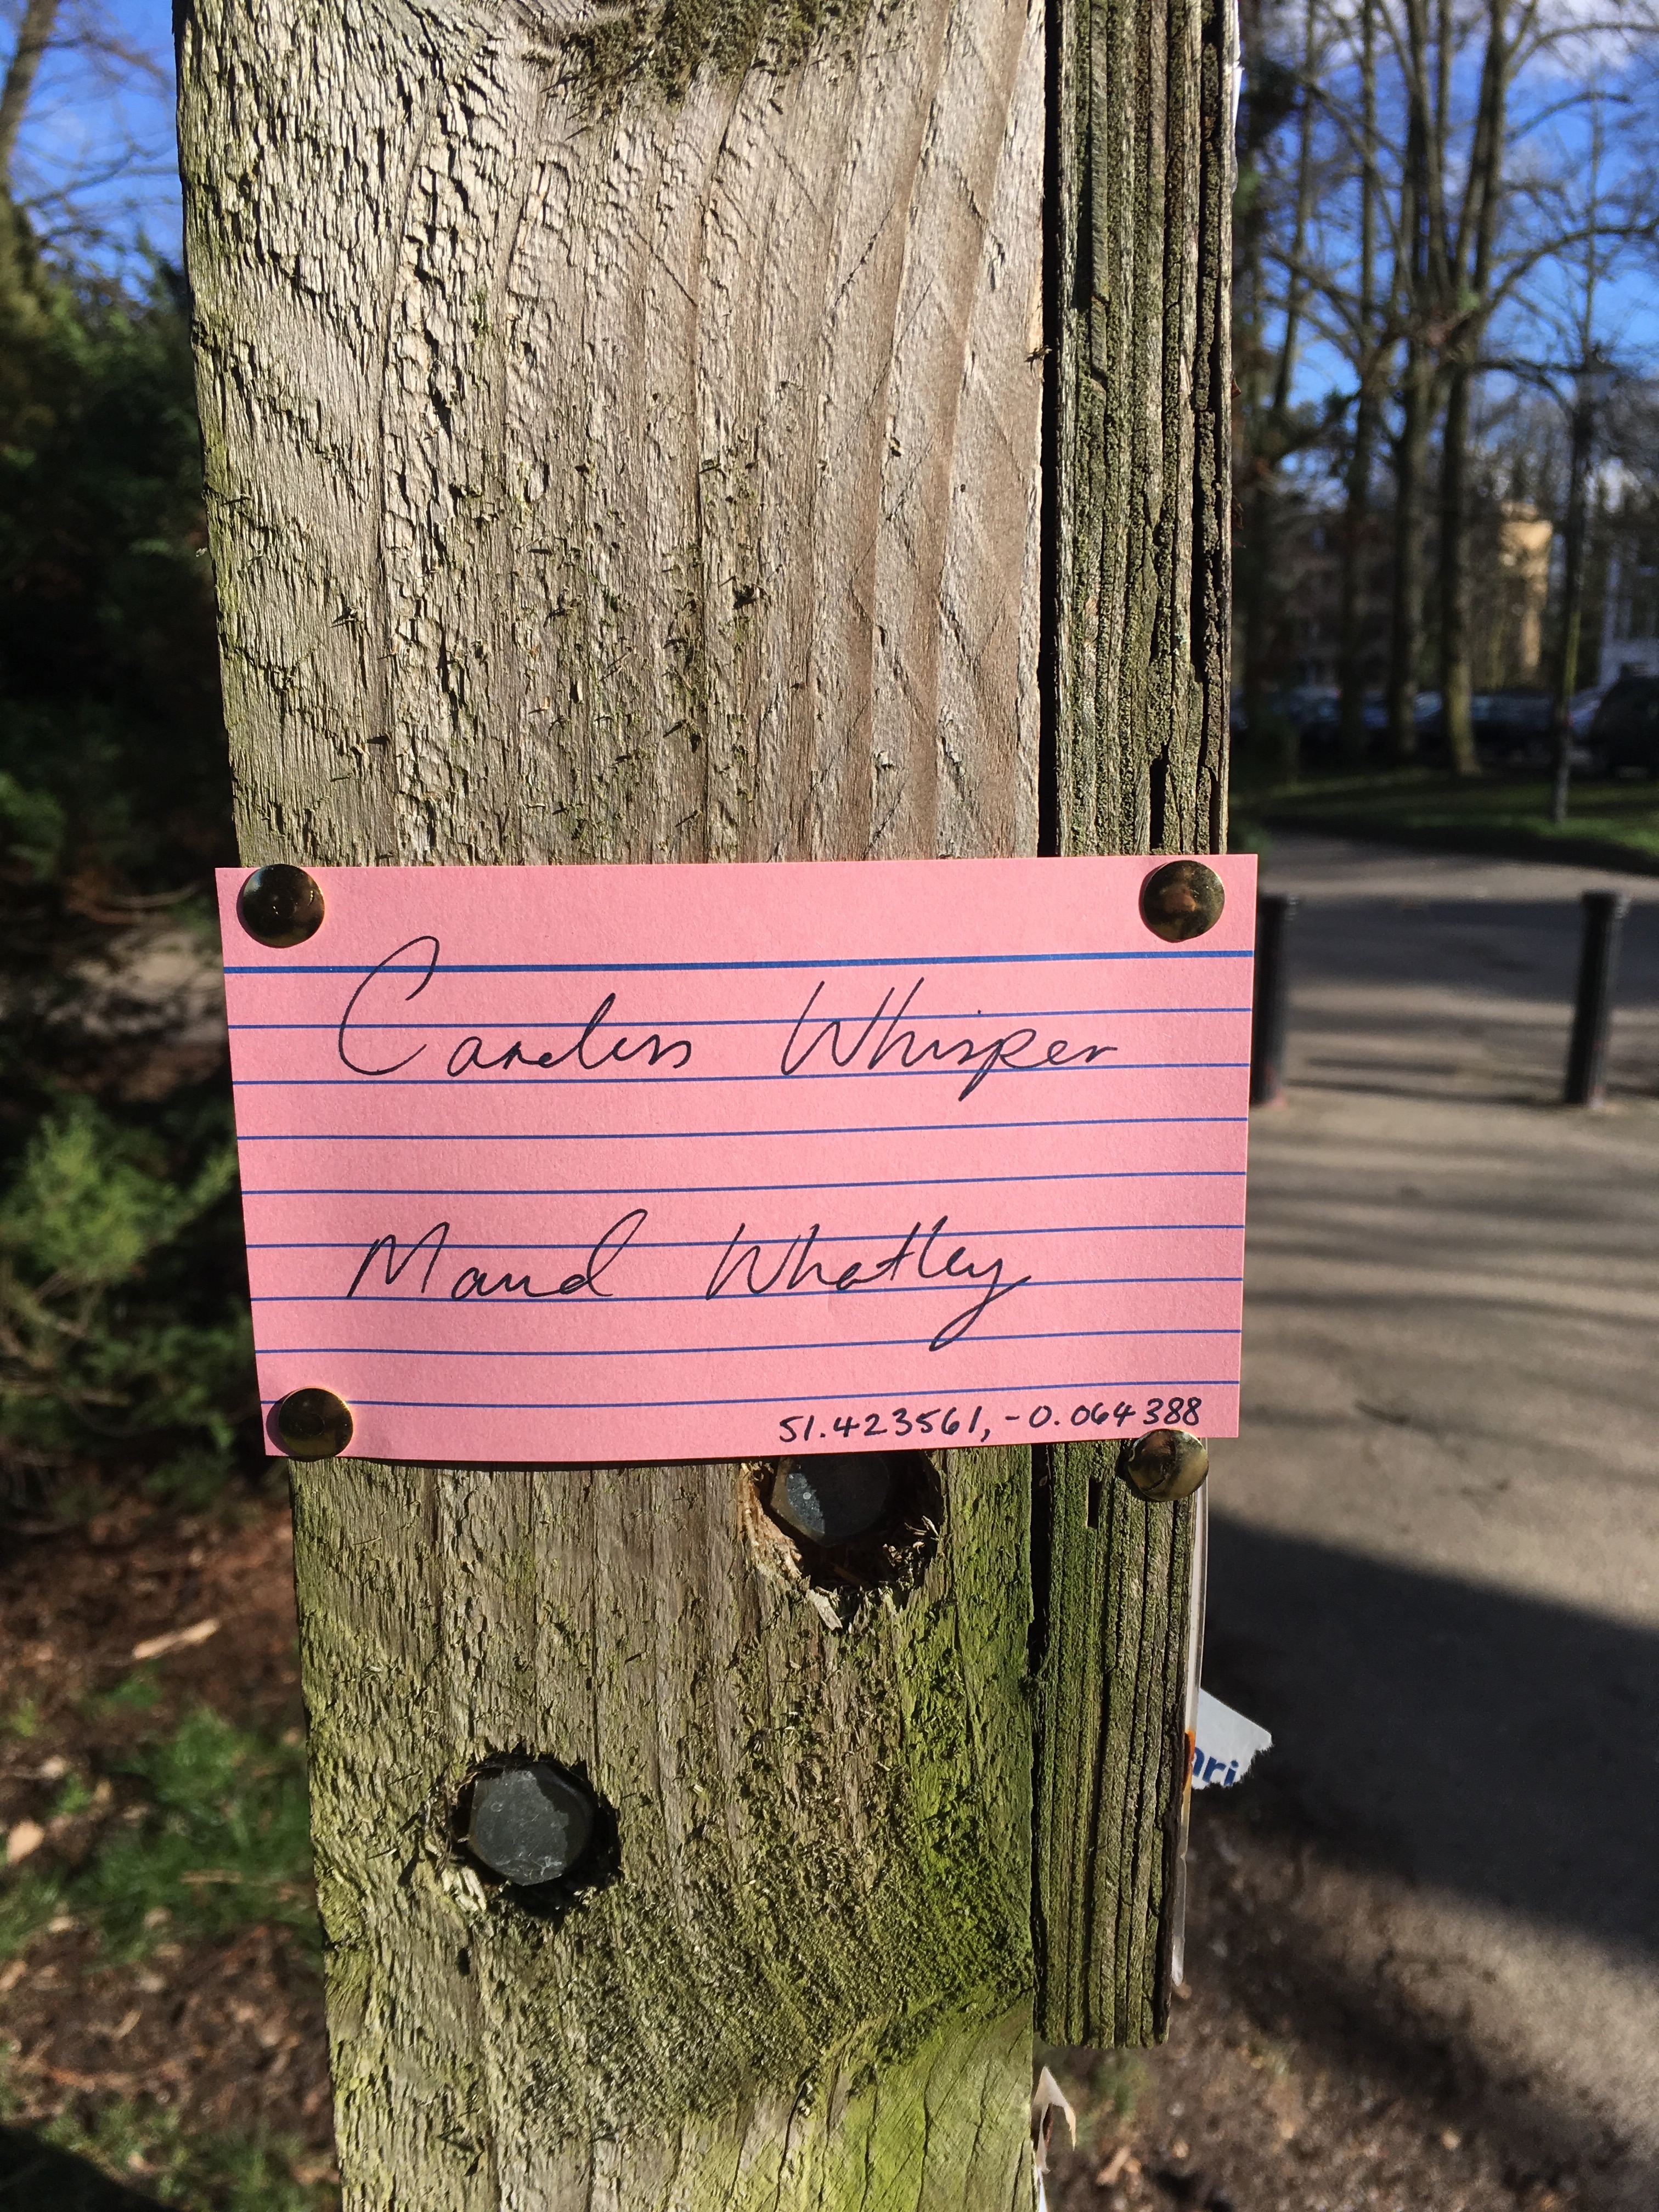 Careless Whisper
Maud Whatley
51.423561, -0.064388
ari